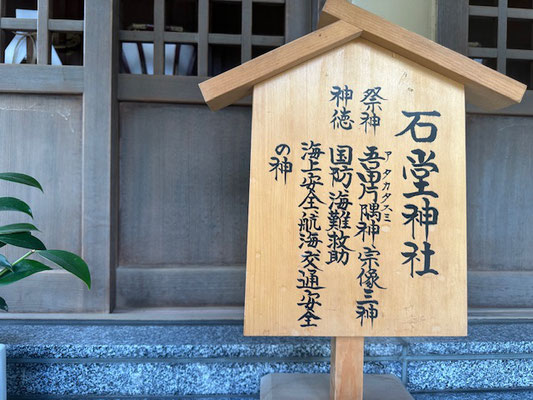 石堂神社
祭神 吾田片隅神 宗像三神
アタカタスミ
神徳 国防海難救助
海上安全航海交通安全
の神